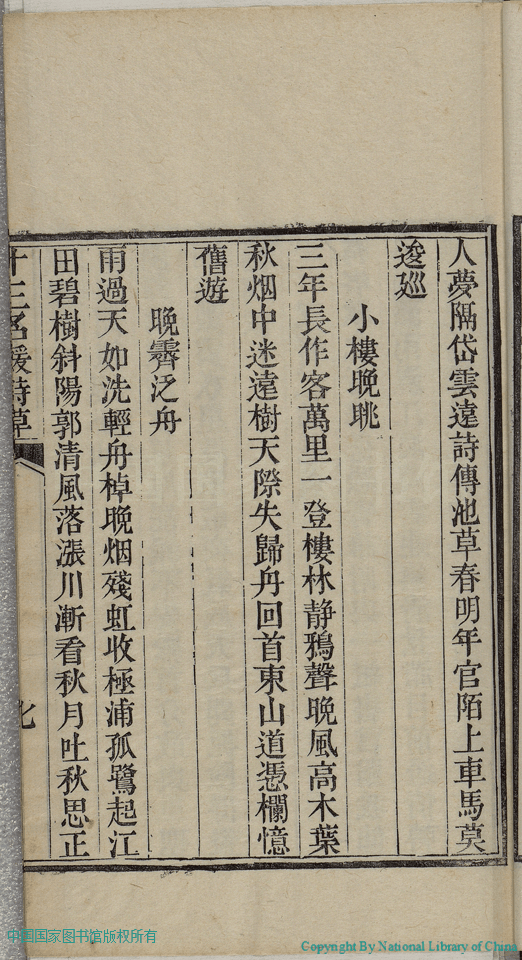 人夢隔岱雲遠詩傳池草春明年官陌上車馬莫
逡廵
小樓晚眺
三年長作客萬里一登樓林静鴉聲晚風高木葉
秋烟中迷遠樹天際失歸舟回首東山道憑欄憶
舊遊
晚霽泛舟
雨過天如洗輕舟棹晚烟殘虹收極浦孤鷺起江
田碧樹斜陽郭清風落漲川漸看秋月吐秋思正
十三名媛詩草
七
中国国家图书馆版权所有
Copyright By National Library of China